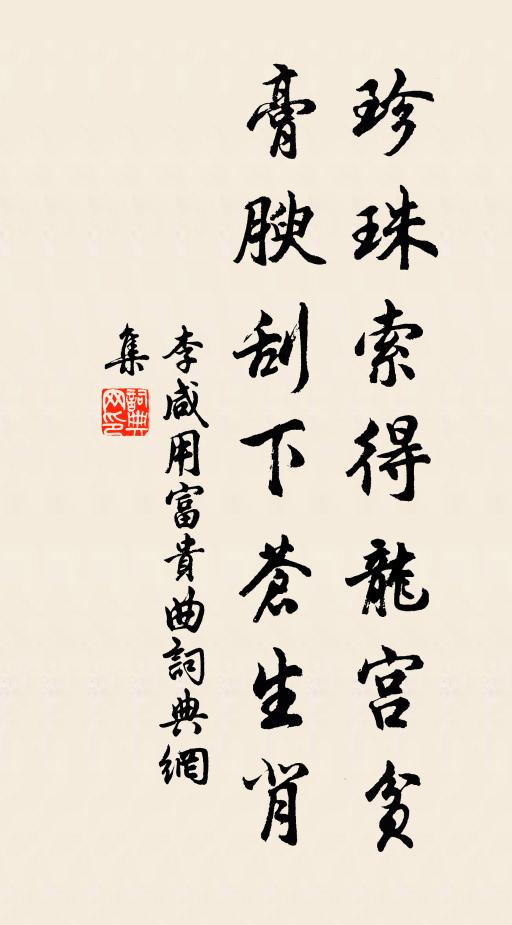 珍珠索得龍宮貧
膏腴刮下蒼生背
李咸用富貴曲詞典網
集
詞典
网印